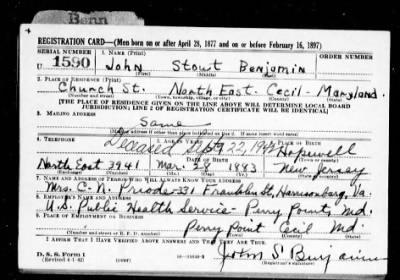 Benn
REGISTRATION CARD—(Men born on or after April 28, 1877 and on or before February 16, 1897)
SERIAL NUMBER 1. NAME (Print) ORDER NUMBER
U 1590 John Stout Benjamin
(First) (Middle) (Last)
2. PLACE OF RESIDENCE (Print)
Church St. North East - Cecil - Maryland.
(Number and street) (Town, township, village, or city) (County) (State)
[THE PLACE OF RESIDENCE GIVEN ON THE LINE ABOVE WILL DETERMINE LOCAL BOARD
JURISDICTION; LINE 2 OF REGISTRATION CERTIFICATE WILL BE IDENTICAL]
3. MAILING ADDRESS
Same
[Mailing address if other than place indicated on line 2. If same insert word same]
4. TELEPHONE PLACE OF BIRTH
Deceased Sept 22, 1942 Hopewell
North East 3941 Mar. 28 1883 New Jersey
7. NAME AND ADDRESS OF PERSON WHO WILL ALWAYS KNOW YOUR ADDRESS
Mrs. C. N. Priode - 331 Franklin St, Harrisonburg, Va.
8. EMPLOYER'S NAME AND ADDRESS
U.S. Public Health Service - Perry Point, Md.
9. PLACE OF EMPLOYMENT OR BUSINESS
Perry Point Cecil Md.
(Number and street or R. F. D. number) (Town) (County) (State)
I AFFIRM THAT I HAVE VERIFIED ABOVE ANSWERS AND THAT THEY ARE TRUE.
D. S. S. Form 1
(Revised 4-1-42) John S. Benjamin
(Registrant's signature)